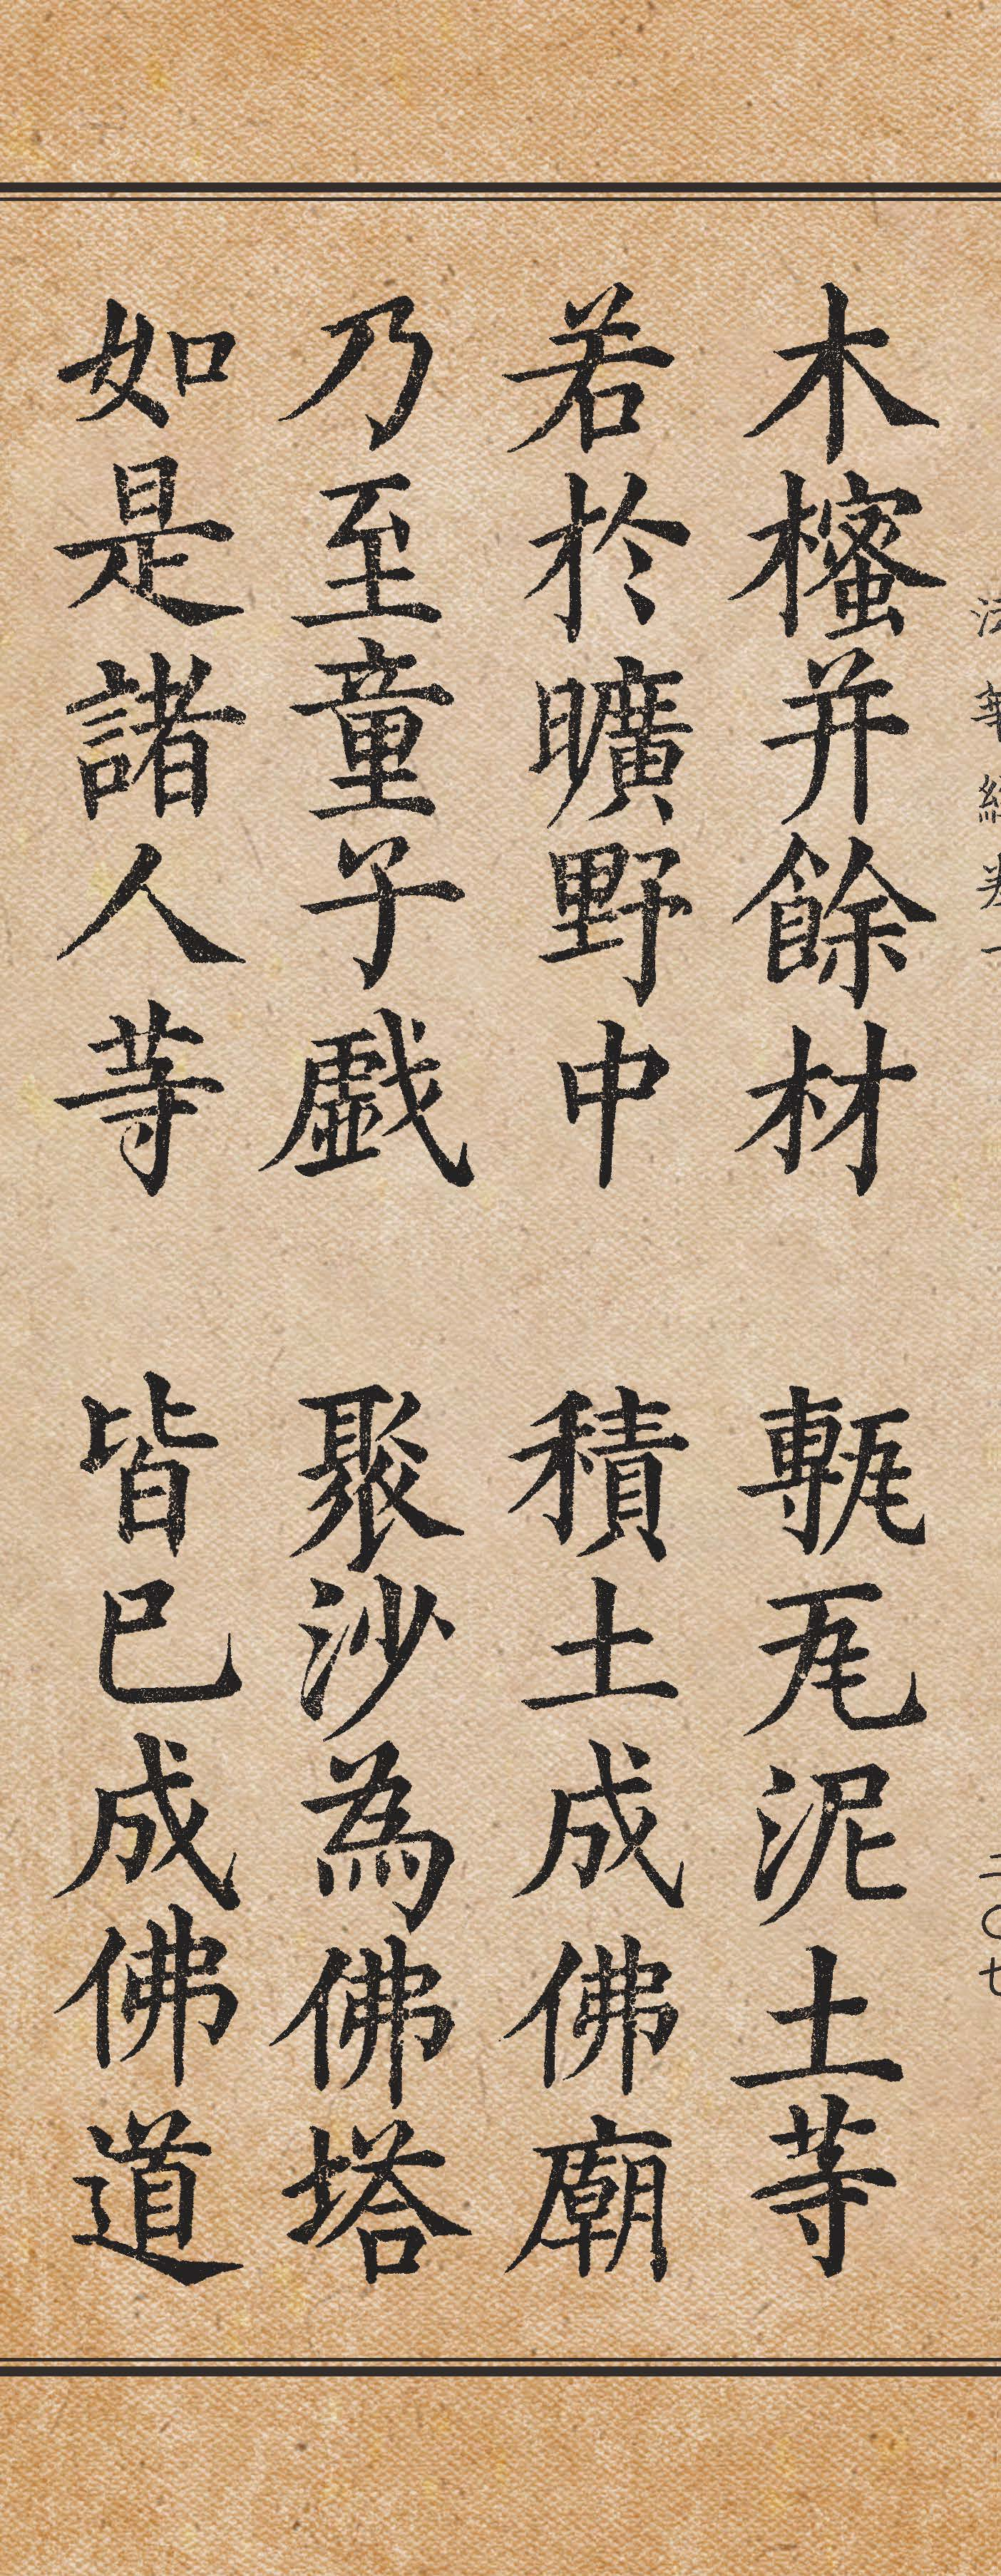 木櫁并餘材　甎瓦泥土等
若於曠野中　積土成佛廟
乃至童子戲　聚沙為佛塔
如是諸人等　皆已成佛道